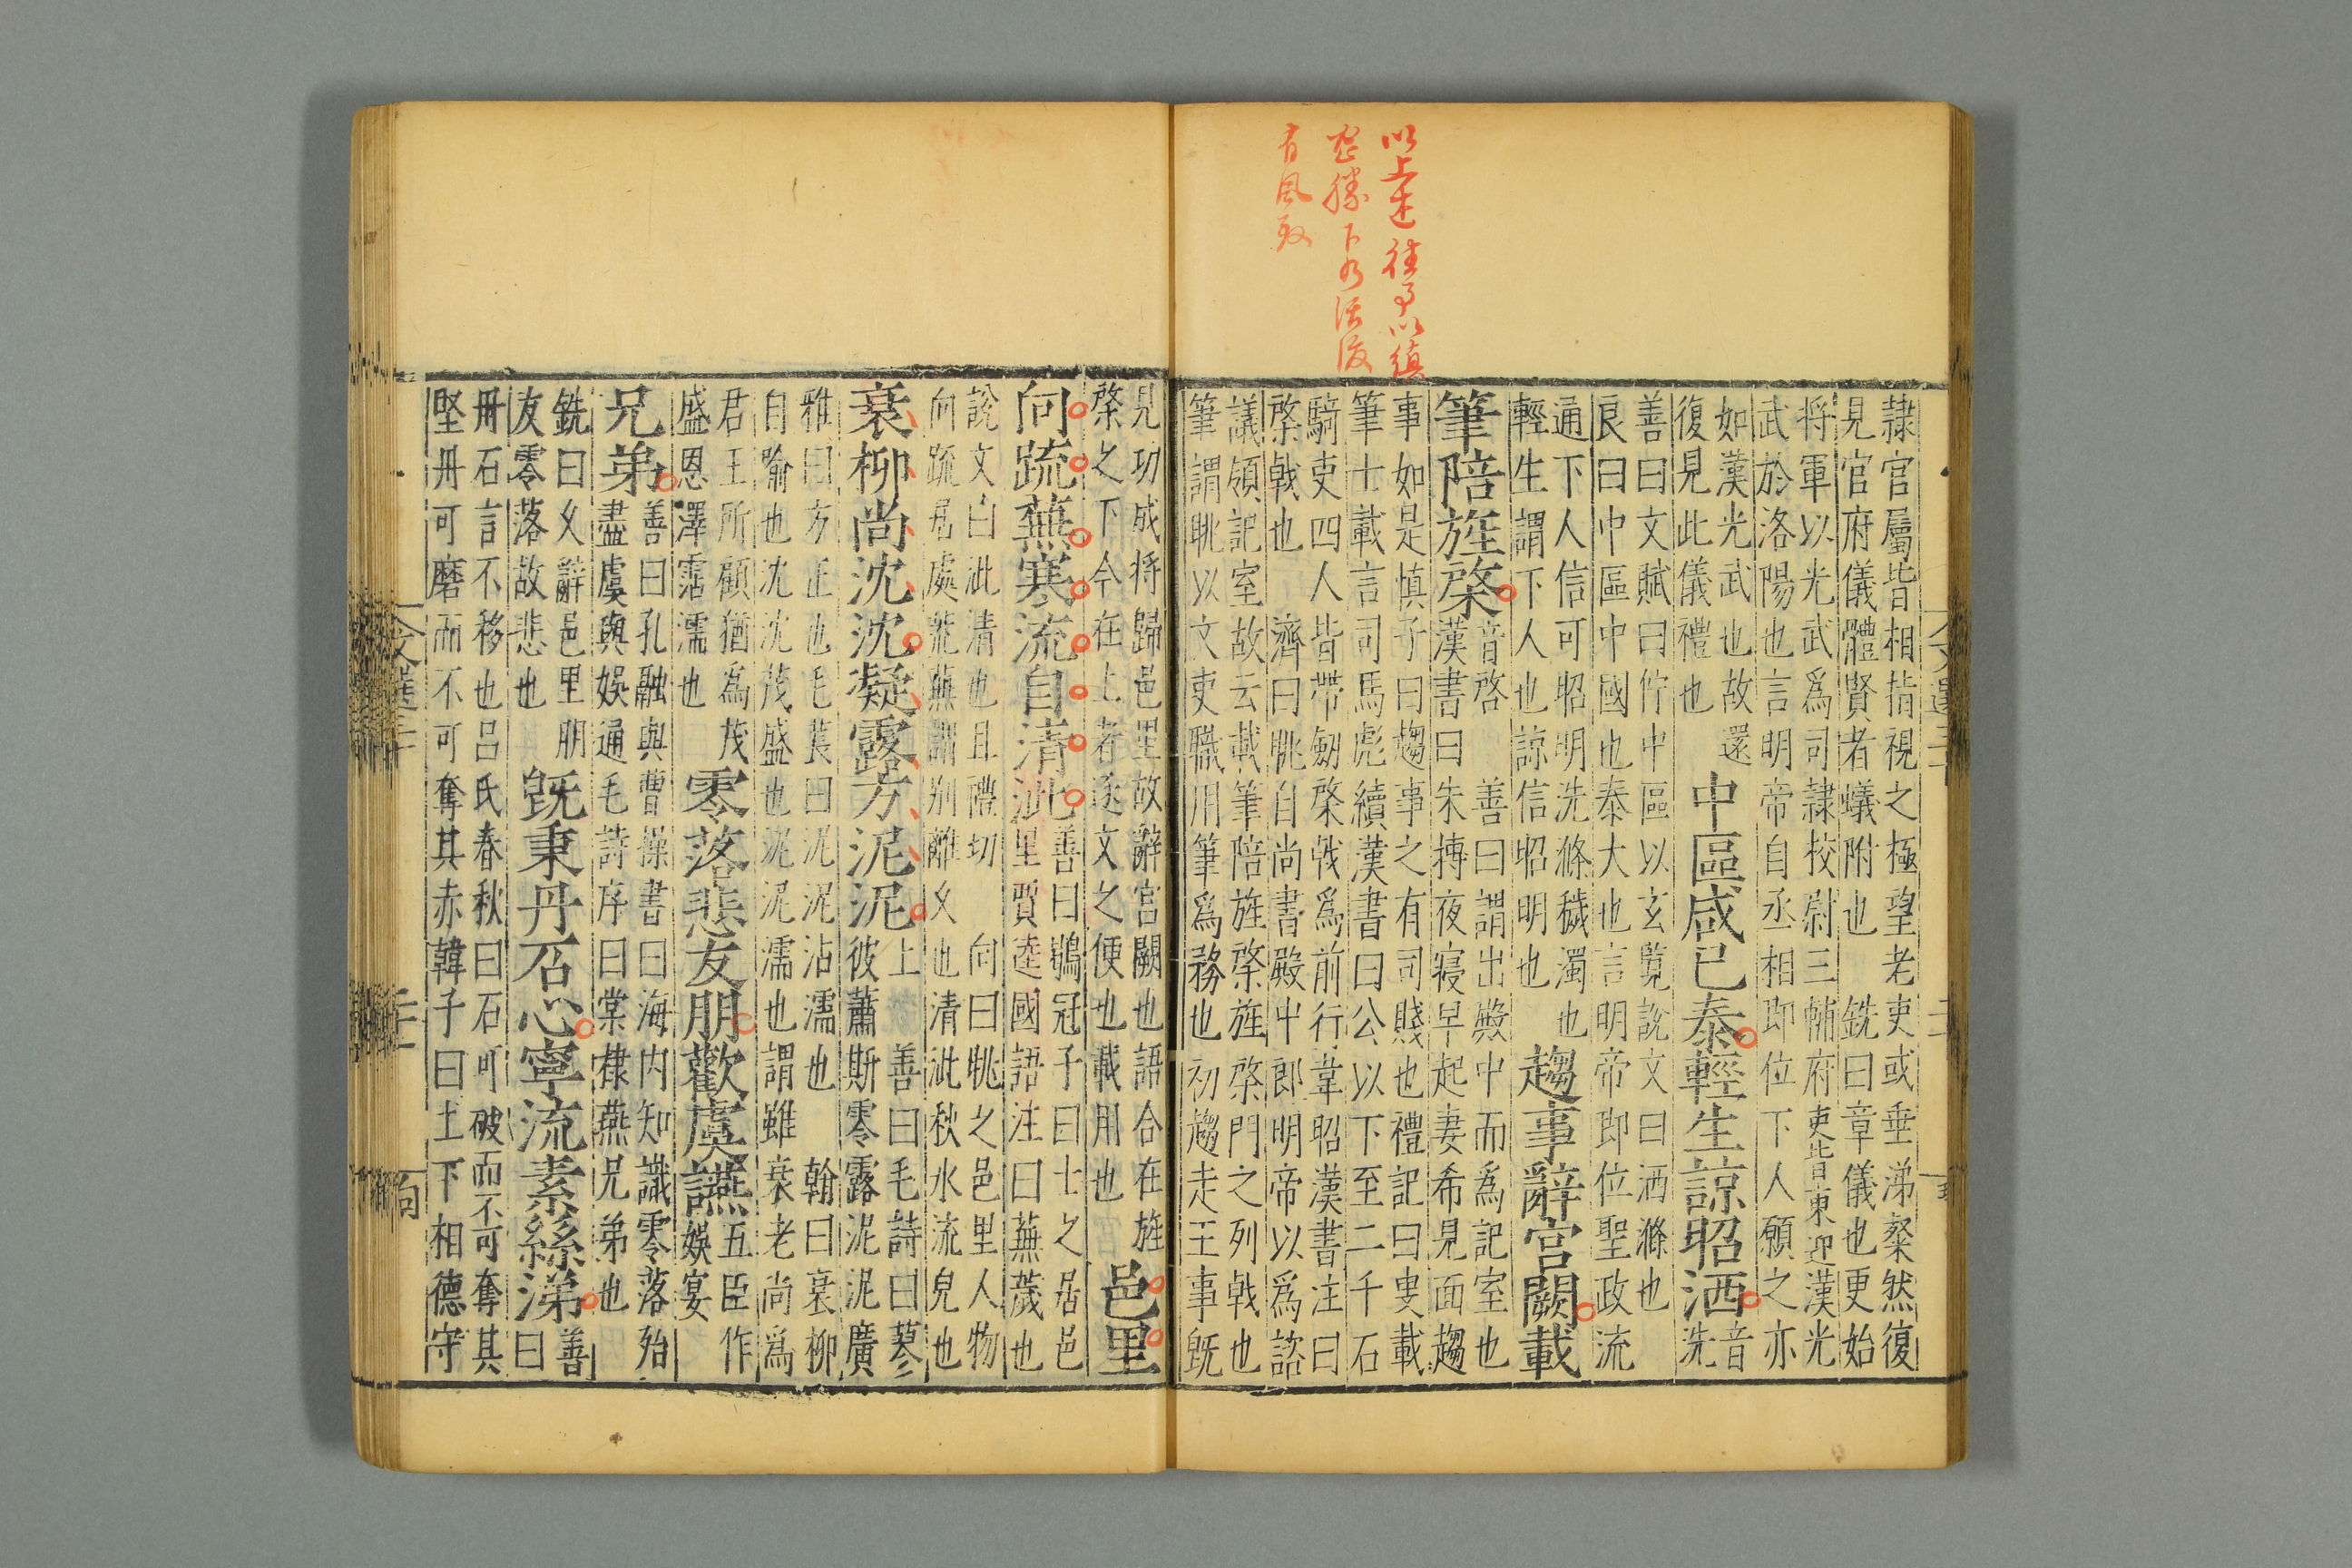 以上述往事以縝
密勝下活潑
有風致
隷官屬皆相指視之極望老吏或垂涕粲然復
見官府儀體賢者蟻附也 銑曰章儀也更始
将軍以光武爲司隷校尉三輔府吏皆東迎漢光
武於洛陽也言明帝自丞相即位下人願之亦
如漢光武也故還
復見此儀禮也
中區咸已泰輕生諒昭洒
音
洗
善曰文賦曰佇中區以玄覧說文曰洒滌也
良曰中區中國也泰大也言明帝即位聖政流
通下人信可昭明洗滌穢濁也
輕生謂下人也諒信昭明也
趨事辭宮闕載
筆陪旌棨
音啓 善曰謂出殿中而爲記室也
漢書曰朱博夜寢早起妻希見面趨
事如是慎子曰趨事之有司賤也禮記曰史載
筆士載言司馬彪續漢書曰公以下至二千石
騎吏四人皆帶劒棨戟爲前行韋昭漢書注曰
棨戟也 濟曰眺自尚書殿中郎明帝以爲諮
議領記室故云載筆陪旌棨旌棨門之列戟也
筆謂眺以文吏職用筆爲務也初趨走王事旣
見功成将歸邑里故辭宮闕也語合在旌
棨之下今在上者逐文之便也載用也
邑里
向疏蕪寒流自清泚
善曰鶡冠子曰士之居邑
里賈逵國語注曰蕪薉也
說文曰泚清也且禮切 向曰眺之邑里人物
向疏居處荒蕪謂别離久也清泚秋水流皃也
衰柳尚沈沈凝露方泥泥
上 善曰毛詩曰蓼
彼蕭斯零露泥泥廣
雅曰方正也毛萇曰泥泥沾濡也 翰曰衰柳
自喻也沈沈茂盛也泥泥濡也謂雖衰老尚爲
君王所顧猶爲茂
盛恩澤霑濡也
零落悲友朋歡虞讌
五臣作
娛宴
兄弟
善曰孔融與曹操書曰海内知識零落殆
盡虞與娛通毛詩序曰棠棣燕兄弟也
銑曰久辭邑里朋
友零落故悲也
旣秉丹石心寧流素絲涕
善
曰
丹石言不移也呂氏春秋曰石可破而不可奪其
堅丹可磨而不可奪其赤韓子曰土下相德守